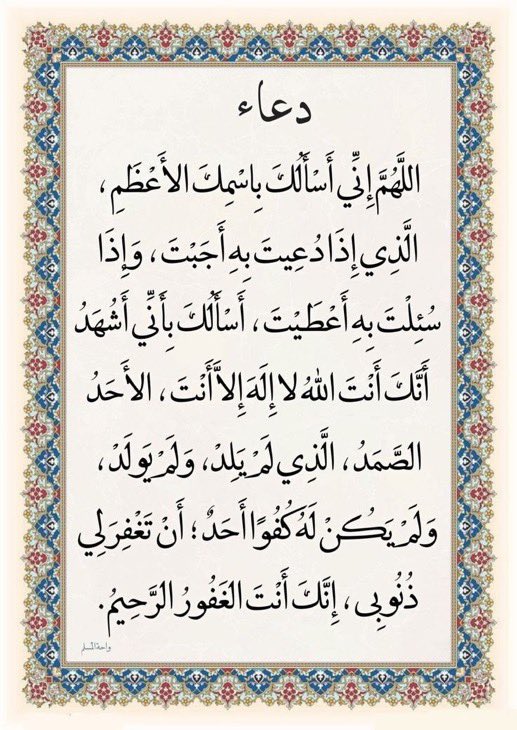 دعاء
اللَّهُمَّ إِنِّي أَسْأَلُكَ بِاسْمِكَ الأَعْظَمِ،
الَّذِي إِذَا دُعِيتَ بِهِ أَجَبْتَ، وَإِذَا
سُئِلْتَ بِهِ أَعْطَيْتَ، أَسْأَلُكَ بِأَنِّي أَشْهَدُ
أَنَّكَ أَنْتَ اللهُ لا إِلَهَ إِلاَّ أَنْتَ، الأَحَدُ
الصَّمَدُ، الَّذِي لَمْ يَلِدْ، وَلَمْ يَولَدْ،
وَلَمْ يَكُنْ لَهُ كُفُوًا أَحَدٌ؛ أَنْ تَغْفِرَ لِي
ذُنُوبِى، إِنَّكَ أَنْتَ الغَفُورُ الرَّحِيمُ.
واحة المسلم